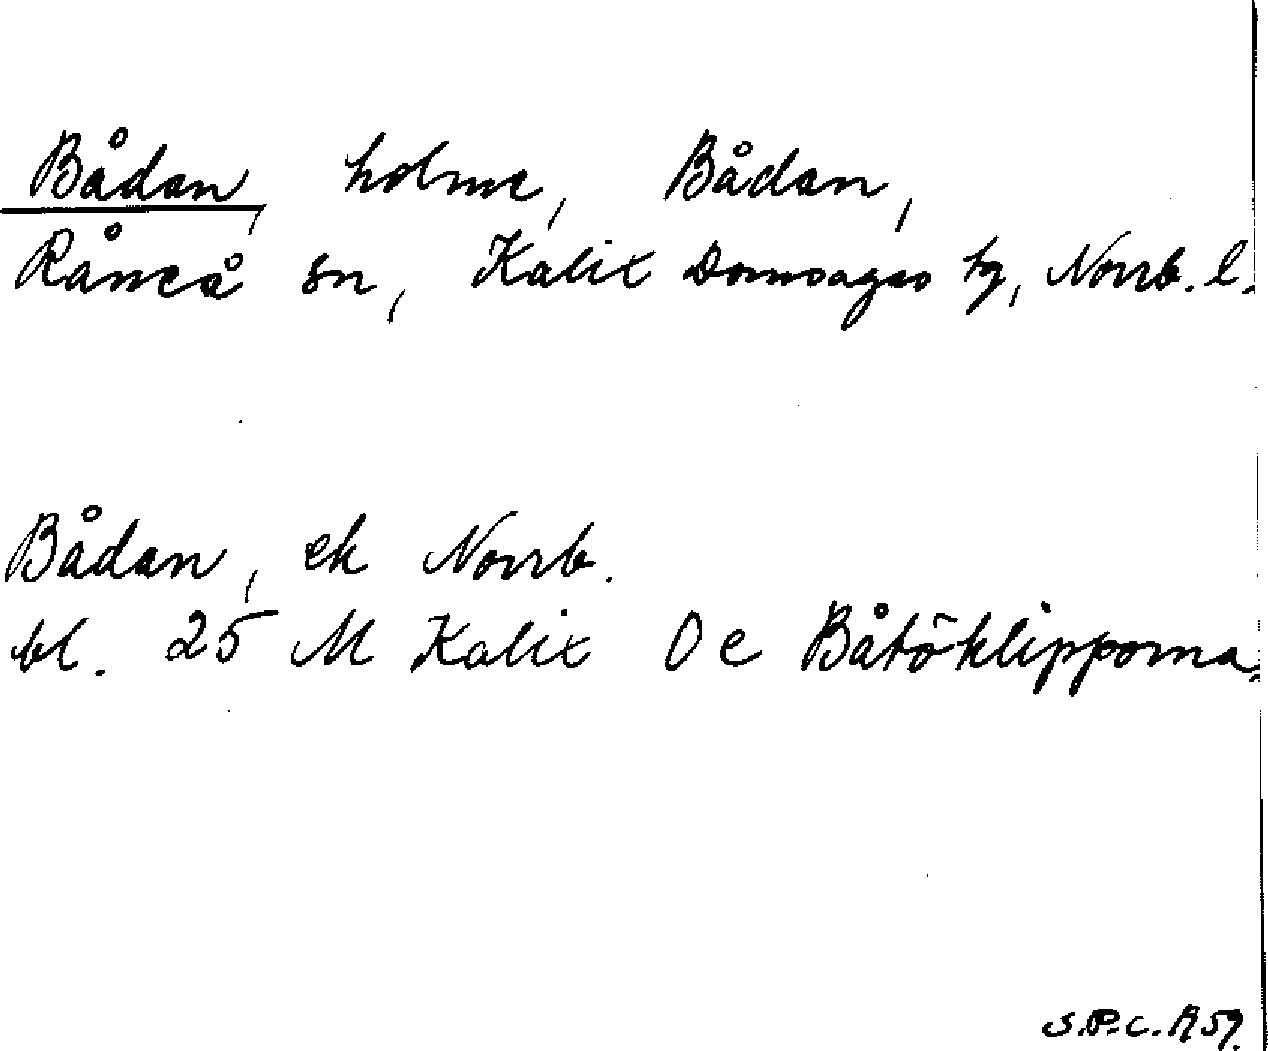 Bådan, holme, Bådan,
Råneå sn, Kalix Domsagas tg, Norrb. l.
Bådan, ek Norrb.
bl. 25 M Kalix Oe Båtöklipporna.
S.P.C. 1959.